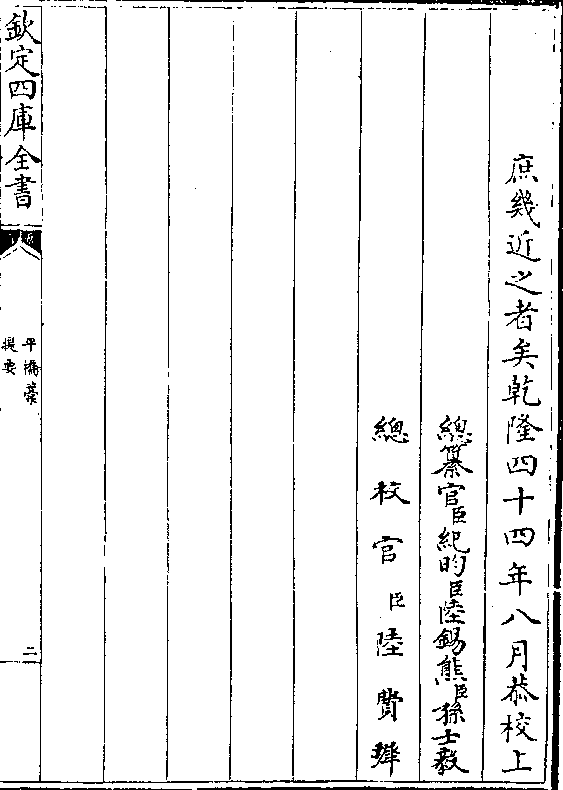 庶幾近之者矣乾隆四十四年八月恭校上
總纂官臣紀昀臣陸錫熊臣孫士毅
總校官臣陸費墀
欽定四庫全書
平橋藁
提要
二